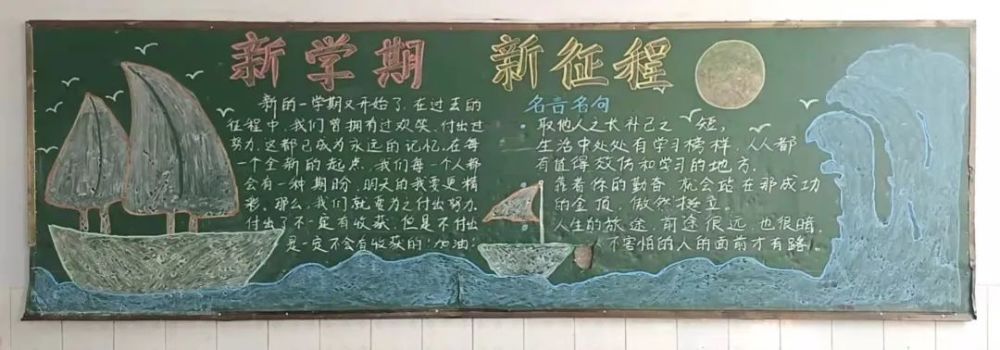 新学期 新征程
新的一学期又开始了,在过去的
征程中,我们曾拥有过欢笑,付出过
努力,这都已成为永远的记忆。在每
一个全新的起点,我们每一个人都
会有一种期盼,明天的我要更精
彩。那么,我们就要为之付出努力。
付出了不一定有收获,但是不付出
是一定不会有收获的!加油!
名言名句
取他人之长补己之短,
生活中处处有学习榜样,人人都
有值得效仿和学习的地方。
靠着你的勤奋 就会踏在那成功
的金顶,傲然挺立。
人生的旅途,前途很远,也很暗,
不害怕的人的面前才有路。